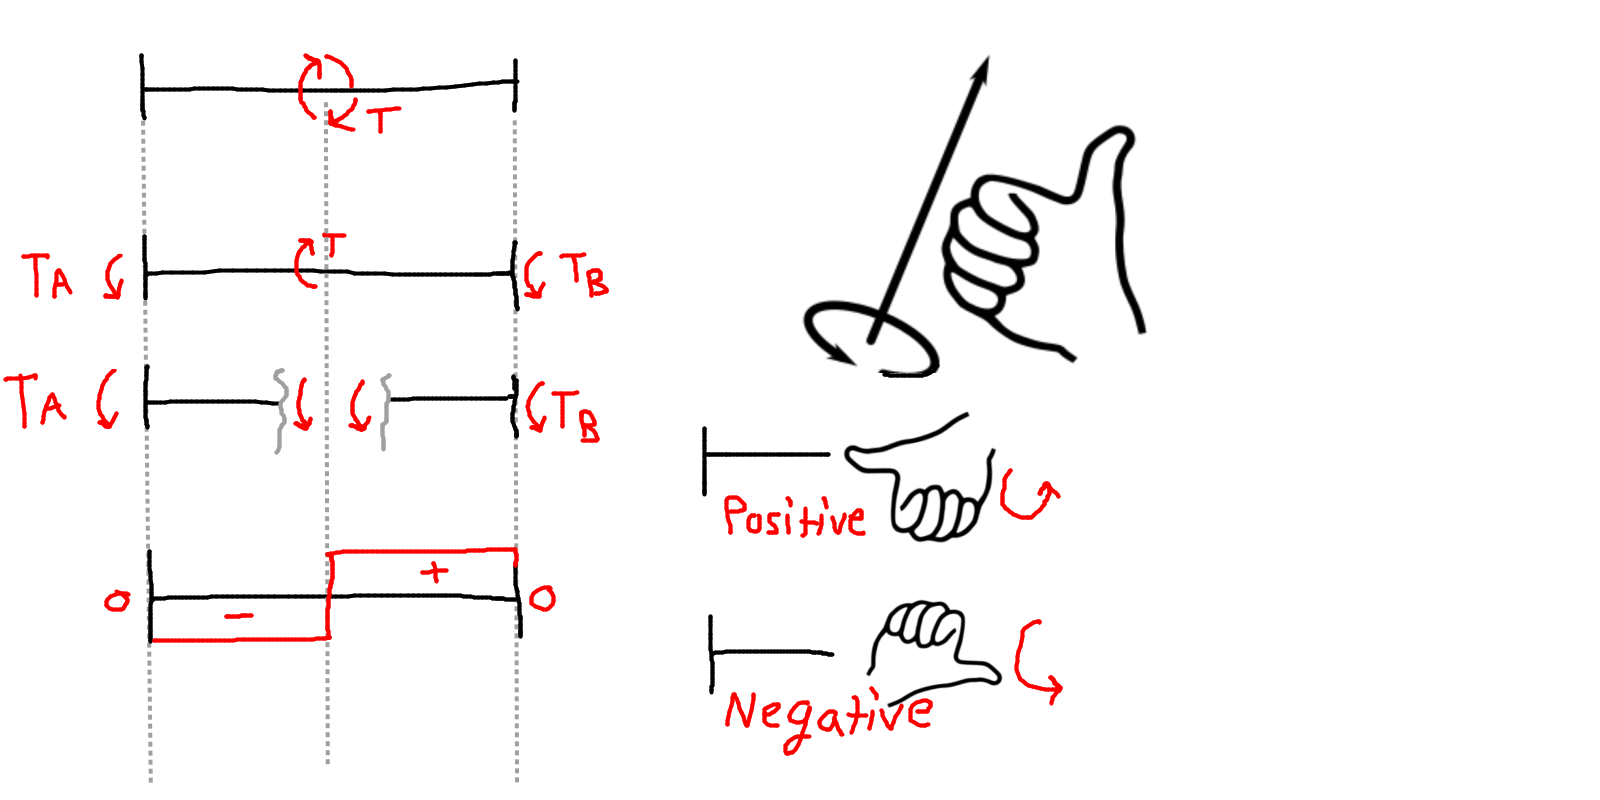 T
TA T TB
TA TB
0 - + 0
Positive
Negative